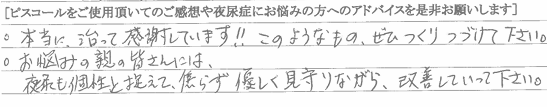 [ピスコールをご使用頂いてのご感想や夜尿症にお悩みの方へのアドバイスを是非お願いします]
○ 本当に、治って感謝しています!! このようなもの、ぜひつくりつづけて下さい。
○ お悩みの親の皆さんには、
夜尿も個性と捉えて、焦らず優しく見守りながら、改善していって下さい。